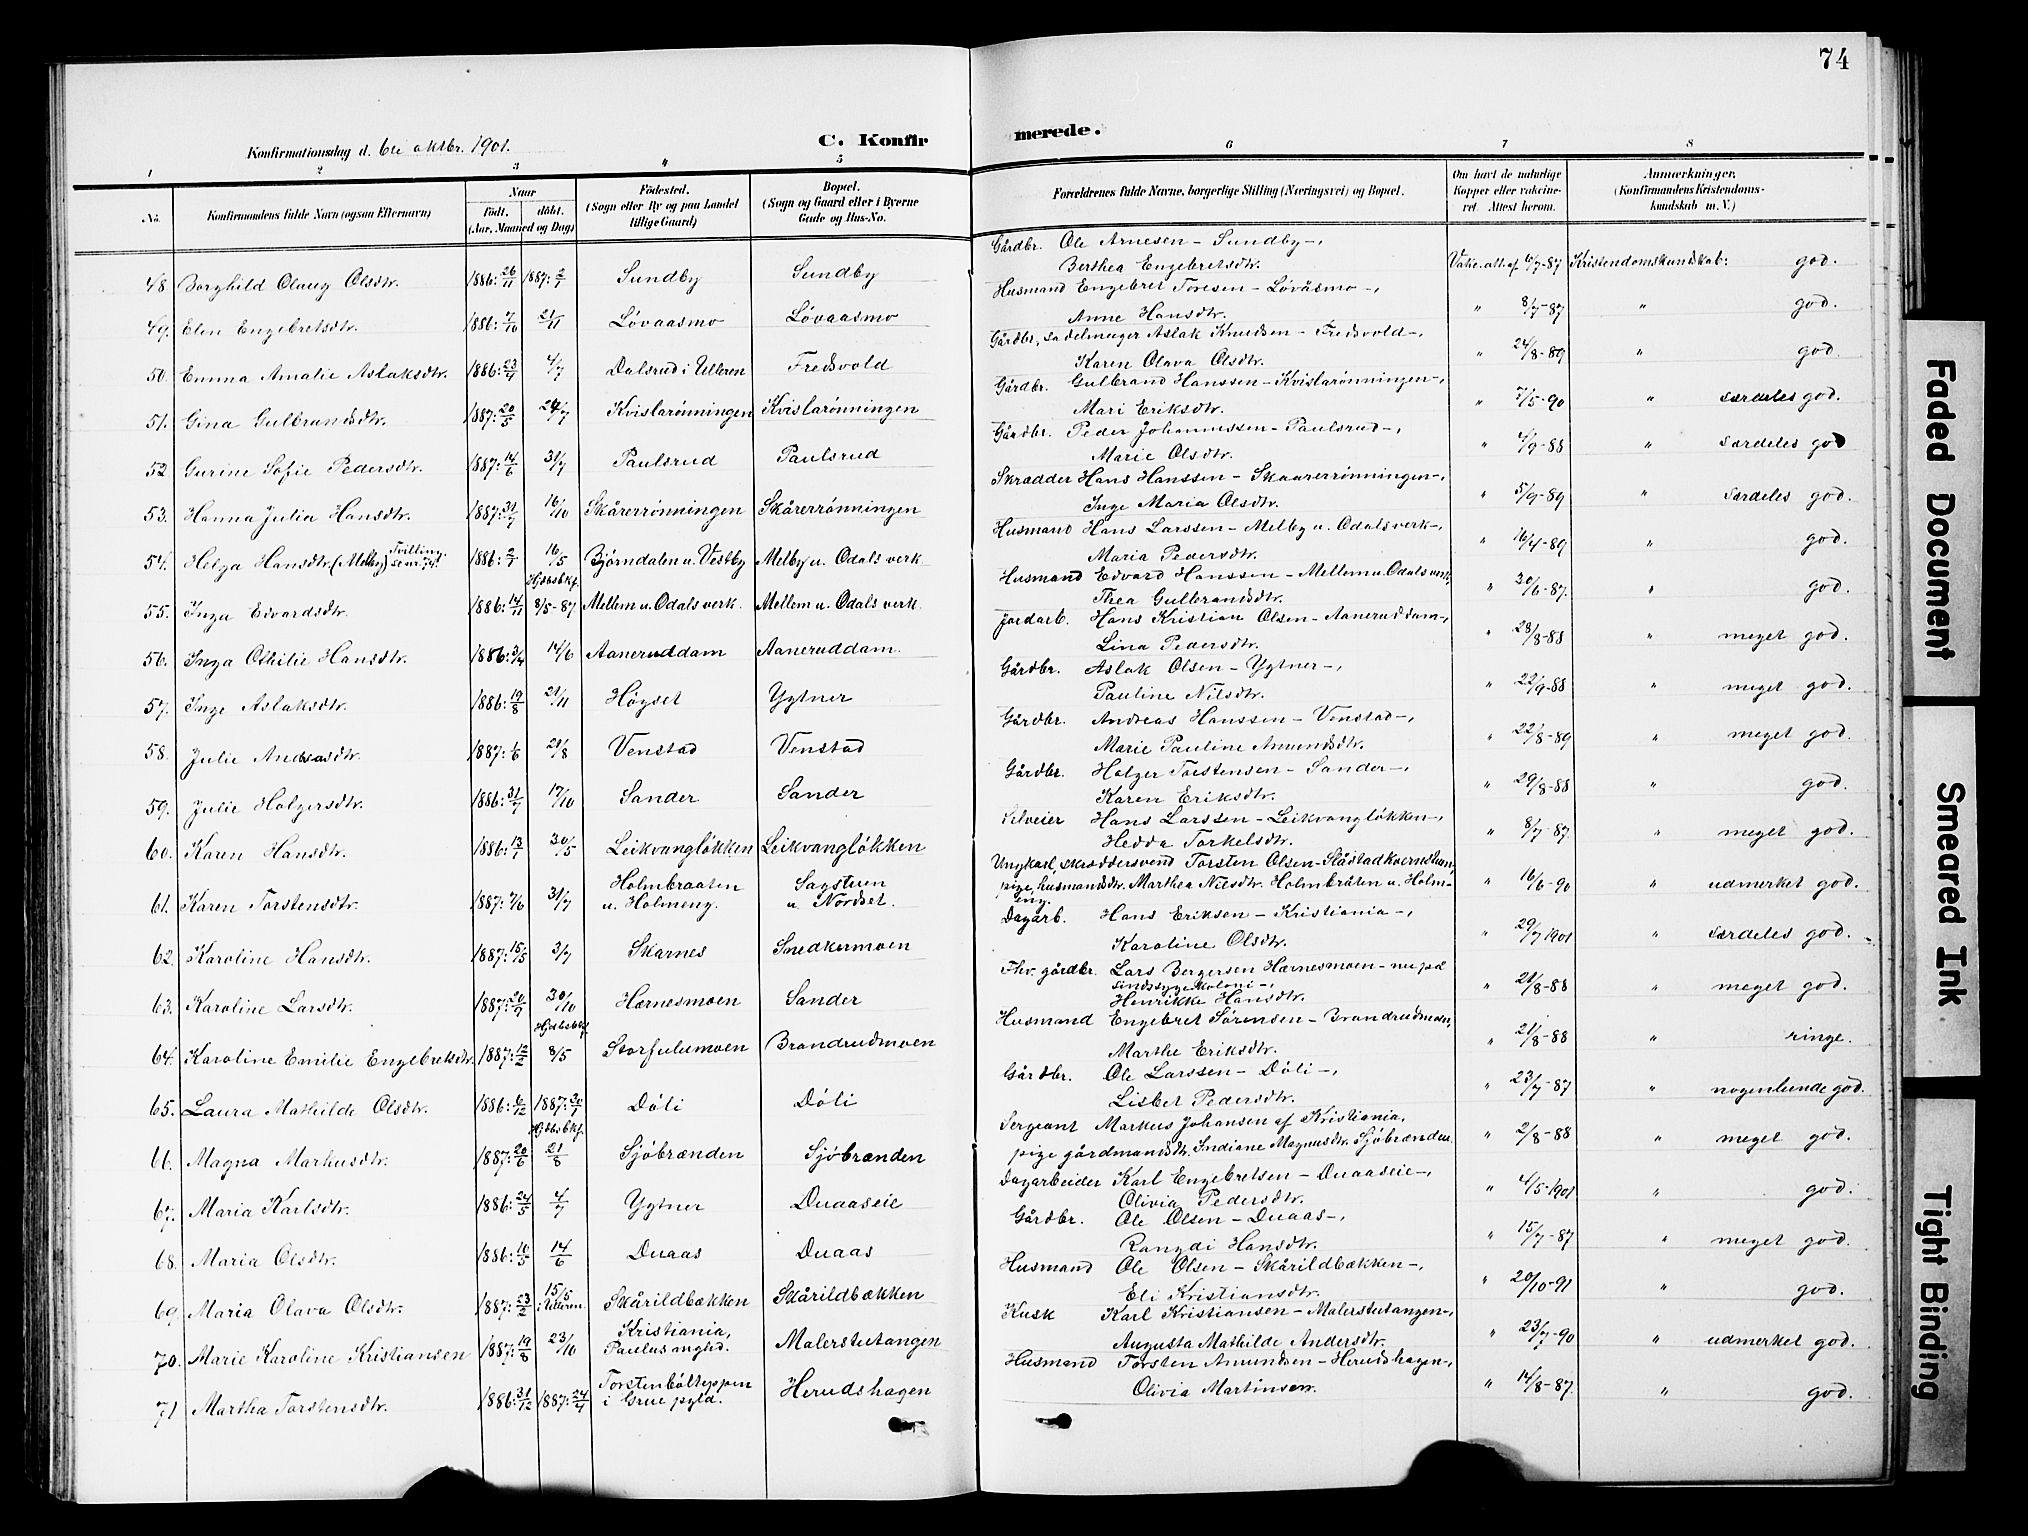 74
Konfirmationsdag d. 6te oktbr. 1901.
C. Konfirmerede.
1 2 3 4 5 6 7 8
No.
Konfirmandens fulde Navn (ogsaa Efternavn)
Naar
födt. döbt.
(Aar, Maaned og Dag)
Födested.
(Sogn eller By og paa Landet tillige Gaard)
Bopæl.
(Sogn og Gaard eller i Byerne Gade og Hus-No.
Forældrenes fulde Navne, borgerlige Stilling (Næringsvei) og Bopæl.
Om havt de naturlige Kopper eller vakcineret. Attest herom.
Anmærkninger.
(Konfirmandens Kristendomskundskab m. V.)
48. Borghild Olaug Olsdtr. 1886: 26/11 1887: 2/1 Sundby Sundby Gårdbr. Ole Arnesen - Sundby -, Berthea Engebretsdtr. Vakc. att. af 4/7-87 Kristendomskundskab: god.
49. Elen Engebretsdtr. 1886: 7/10 21/11 Løvaasmo Løvaasmo Husmand Engebret Toresen - Løvåsmo -, Anne Hansdtr. " 8/7-87 " god.
50. Emma Amalie Aslaksdtr. 1886: 23/4 4/7 Dalsrud i Ulleren Fredsvold Gårdbr., sadelmager Aslak Knudsen - Fredsvold -, Karen Olava Olsdtr. " 24/8-89 " god.
51. Gina Gulbrandsdtr. 1887: 20/5 24/7 Kvislarønningen Kvislarønningen Gårdbr. Gulbrand Hanssen - Kvislarønningen -, Mari Eriksdtr. " 7/5-90 " særdeles god.
52 Gurine Sofie Pedersdtr. 1887: 14/6 31/7 Paulsrud Paulsrud Gårdbr. Peder Johannessen - Paulsrud -, Marie Olsdtr. " 4/9-88 " særdeles god
53. Hanna Julia Hansdtr. 1887: 31/7 16/10 Skårerrønningen Skårerrønningen Skrædder Hans Hanssen - Skaarerrønningen -, Inge Maria Olsdtr. " 5/9-89 " særdeles god.
54. Helga Hansdtr. (Melby) Tvilling 1886: 2/1 16/5 Bjørndalen u. Vestby Melby u. Odals verk. Husmand Hans Larssen - Melby u. Odals verk -, Maria Pedersdtr. " 16/4-89 " god.
55. Inga Edvardsdtr. 1886: 14/11 Hjdbsbkf. 8/5-87 Mellem u. Odals verk. Mellem u. Odals verk. Husmand Edvard Hanssen - Mellem u. Odals verk, Thea Gulbrandsdtr. " 30/6-87. " god.
56. Inga Othilie Hansdtr. 1886: 3/4 14/6 Aaneruddam Aaneruddam. Jordarb. Hans Kristian Olsen - Aaneruddam -, Lina Pedersdtr. " 28/8-88 " meget god.
57. Inge Aslaksdtr. 1886: 19/8 21/11 Høgset Ygtner Gårdbr. Aslak Olsen - Ygtner -, Pauline Nilsdtr. " 22/9-88 " meget god.
58. Julie Andreasdtr. 1887: 1/6 21/8 Venstad Venstad Gårdbr. Andreas Hanssen - Venstad -, Marie Pauline Amundsdtr. " 22/8-89 " meget god.
59. Julie Holgersdtr. 1886: 31/7 17/10 Sander Sander Gårdbr. Holger Torstensen - Sander -, Karen Eriksdtr. " 29/8-88 " god.
60. Karen Hansdtr. 1886: 13/1 30/5 Leikvangløkken Leikvangløkken Selveier Hans Larssen - Leikvangløkken -, Hedda Torkelsdtr. " 8/7-87 " meget god.
61. Karen Torstensdtr. 1887: 7/6 31/7 Holmbraaten u. Holmeng. Sagstuen u. Nordset. Ungkarl, skræddersvend Torsten Olsen - Slåstad kvernstuen, pige, husmandsdtr. Marthea Nilsdtr. Holmbråten u. Holmeng. " 16/6-90 " udmerket god.
62. Karoline Hansdtr. 1887: 15/5 3/7 Skarnes Snedkermoen Dagarb. Hans Eriksen - Kristiania -, Karoline Olsdtr. " 29/7 1901 " særdeles god.
63. Karoline Larsdtr. 1887: 20/7 30/10 Hærnesmoen Sander Fhv. gårdbr. Lars Bergersen Hærnesmoen - nu på sindssygekoloni -, Henrikke Hansdtr. " 21/8-88 " meget god.
64. Karoline Emilie Engebretsdtr. 1887: 12/2 Hjdbsbkf 8/5 Storfulumoen Brandrudmoen Husmand Engebret Sørensen - Brandrudmoen, Marthe Eriksdtr. " 21/8-88 " ringe.
65. Laura Mathilde Olsdtr. 1886: 6/12 1887: 30/1 Döli Döli Gårdbr. Ole Larssen - Döli -, Lisbet Pedersdtr. " 23/7-87 " nogenlunde god.
66. Magna Markusdtr. 1887: 20/6 Hjdbsbkf. 21/8 Sjöbrænden Sjöbrænden Sergeant Markus Johansen af Kristiania, pige gårdmandsdtr. Indiane Magnusdtr. Sjöbrænden. " 2/8-88 " meget god.
67. Maria Karlsdtr. 1886: 24/5 4/7 Ygtner Duaaseie Dagarbeider Karl Engebretsen - Duaaseie -, Olivia Pedersdtr. " 4/5-1901 " god.
68. Maria Olsdtr. 1886: 10/5 14/6 Duaas Duaas Gårdbr. Ole Olsen - Duaas -, Rangdi Hansdtr. " 15/7-87 " meget god.
69. Maria Olava Olsdtr. 1887: 23/2 15/5 i Ulleren Skårildbækken Skårildbækken Husmand Ole Olsen - Skårildbækken -, Eli Kristiansdtr. " 20/10-91 " god.
70. Marie Karoline Kristiansen 1887: 19/8 23/10 Kristiania, Paulus mghd. Malerstutangen Kusk Karl Kristiansen - Malerstutangen -, Augusta Mathilde Andersdtr. " 23/7-90 " udmerket god.
71 Marthea Torstensdtr. 1886: 31/12 1887: 24/4 Torstenbölteppen i Grue pgld. Herudshagen Husmand Torsten Amundsen - Herudshagen -, Olivia Martinsen. " 14/8-87. " god.
Faded Document
Smeared Ink
Tight Binding